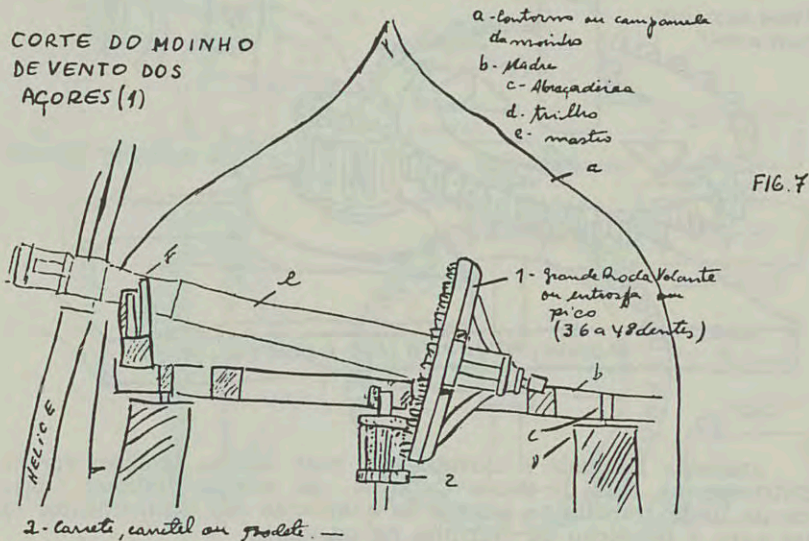 CORTE DO MOINHO
DE VENTO DOS
AÇORES (1)
a - Contorno ou campanula
do moinho
b - Madre
c - Abraçadeiras
d - trilho
e - mastro
a
FIG. 7
f
e
1 - Grande Roda Volante
ou entrosa ou
pico
(36 a 48 dentes)
b
c
D
HELICE
2
2 - Carrete, carretel ou rodete. —